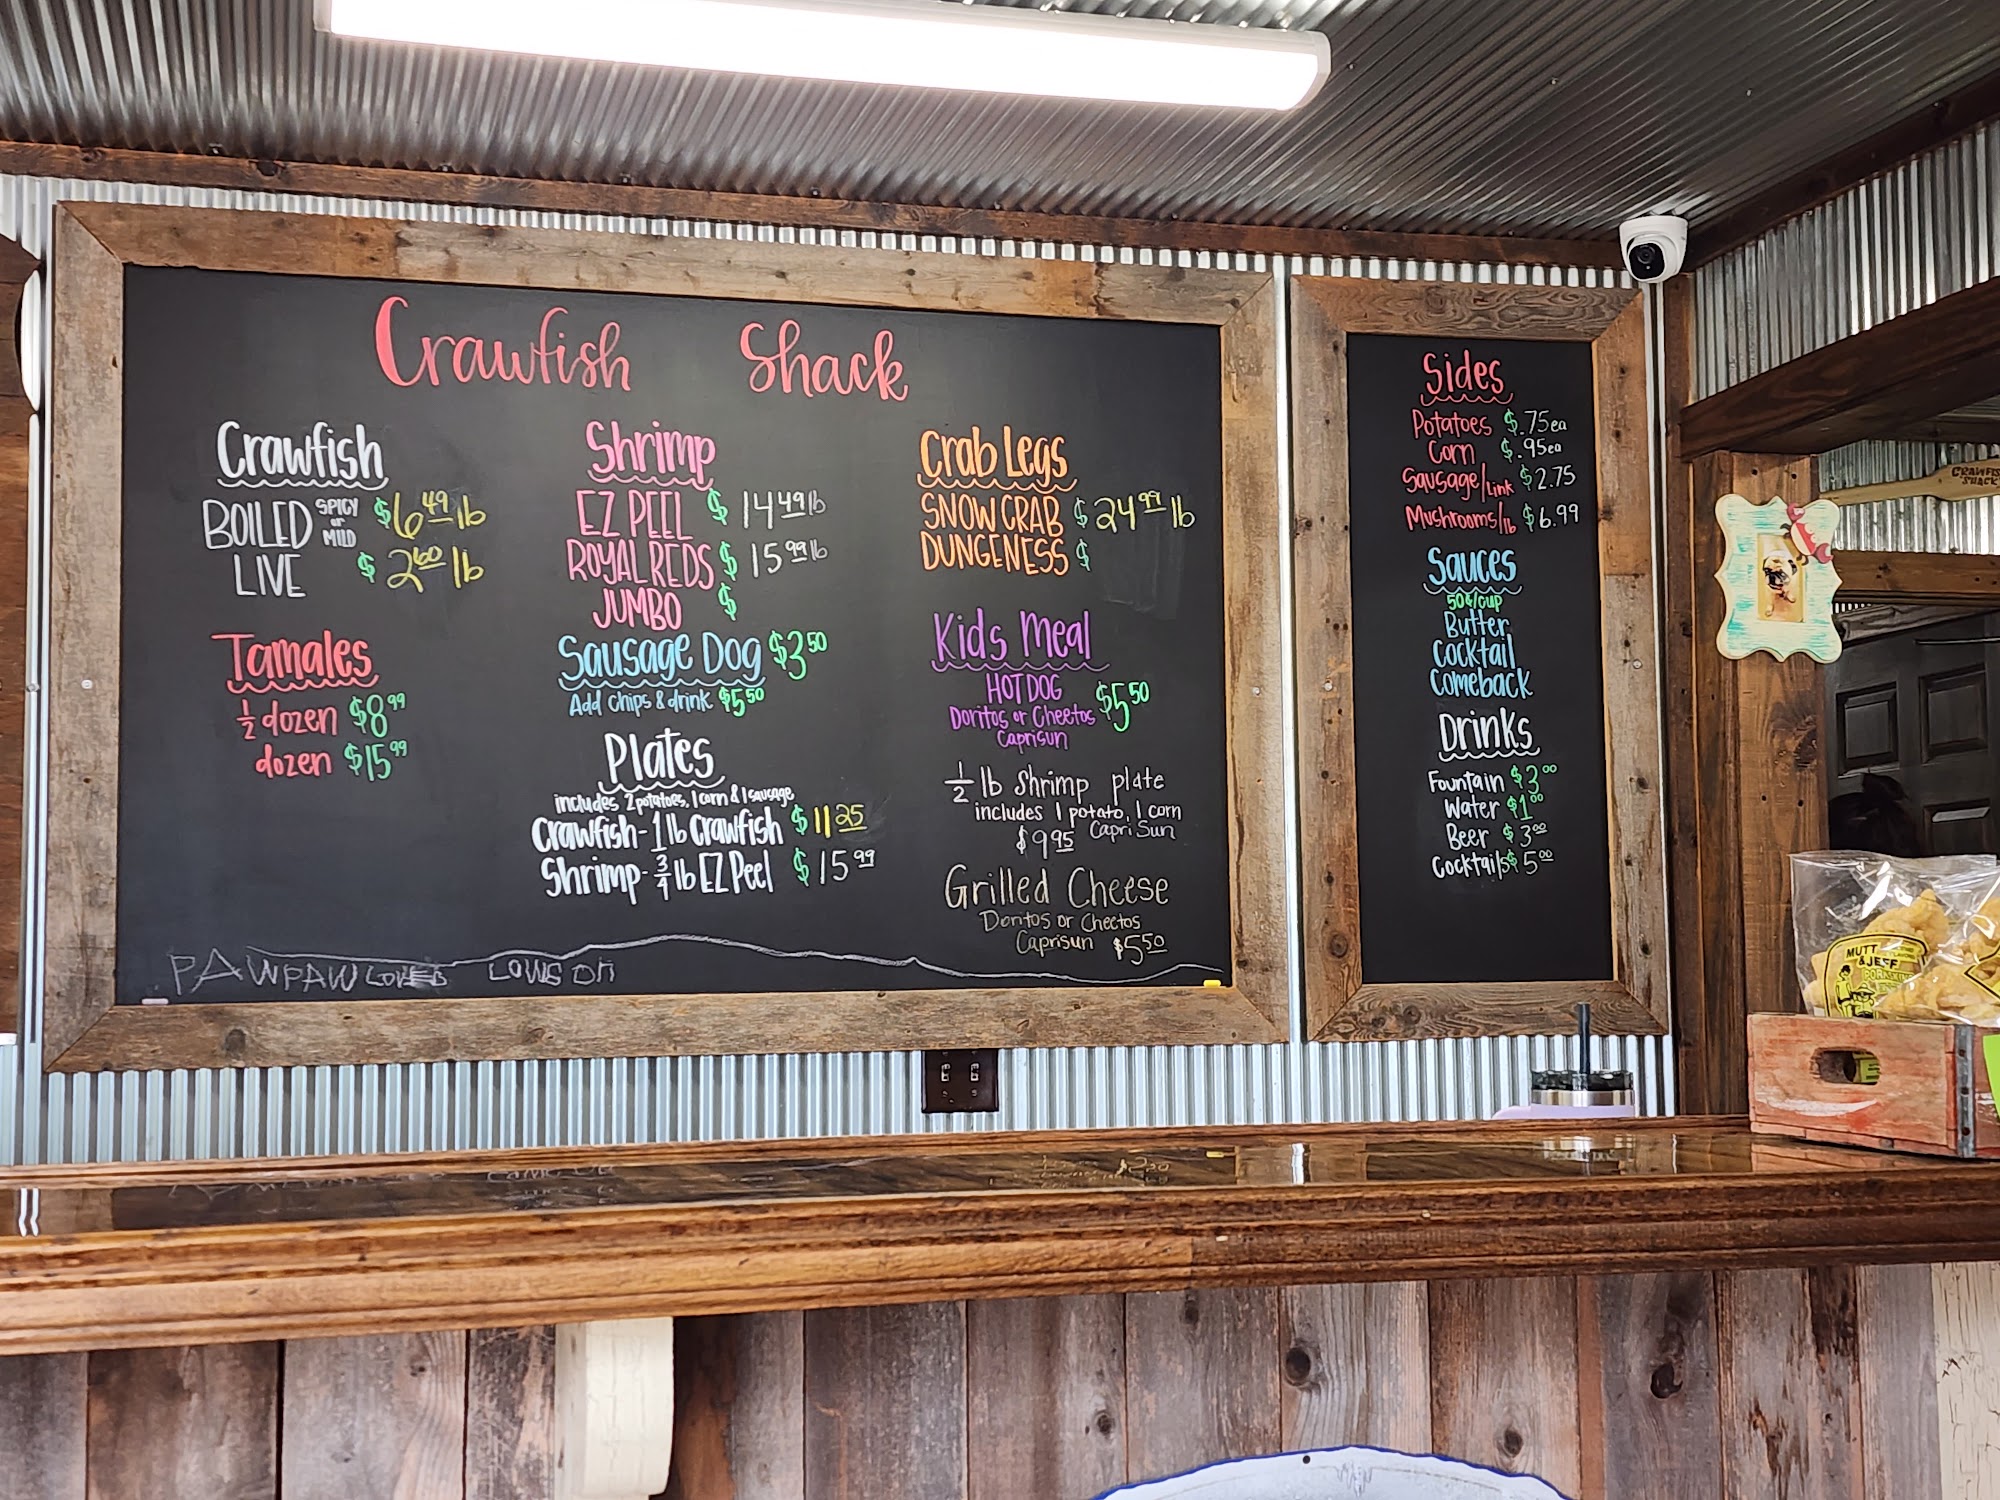 Crawfish Shack
Crawfish
BOILED SPICY or MILD $6.49 lb
LIVE $2.60 lb
Tamales
1/2 dozen $8.99
dozen $15.99
Shrimp
EZ PEEL $14.49 lb
ROYAL REDS $15.99 lb
JUMBO $
Sausage Dog $3.50
Add chips & drink $5.50
Plates
includes 2 potatoes, 1 corn & 1 sausage
Crawfish - 1 lb Crawfish $11.25
Shrimp - 3/4 lb EZ Peel $15.99
Crab Legs
SNOW CRAB $24.99 lb
DUNGENESS $
Kids Meal
HOT DOG $5.50
Doritos or Cheetos
Caprisun
1/2 lb Shrimp plate
includes 1 potato, 1 corn
$9.95 Capri Sun
Grilled Cheese
Doritos or Cheetos
Caprisun $5.50
PAWPAW LOVES
Sides
Potatoes $.75 ea
Corn $.95 ea
Sausage/Link $2.75
Mushrooms/lb $6.99
Sauces
50¢/cup
Butter
Cocktail
Comeback
Drinks
Fountain $3.00
Water $1.00
Beer $3.00
Cocktails $5.00
CRAWFISH
SHACK
MUTT
& JEFF